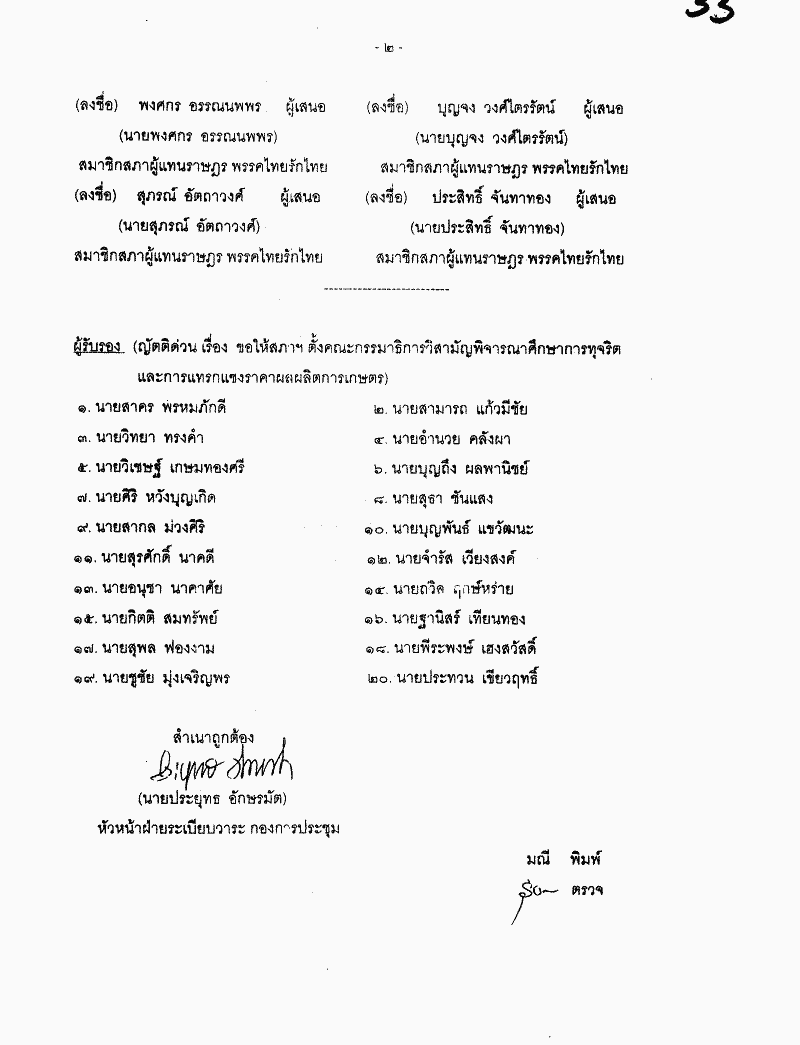 33
- ๒ -
(ลงชื่อ) พงศกร อรรณนพพร ผู้เสนอ (ลงชื่อ) บุญจง วงศ์ไตรรัตน์ ผู้เสนอ
(นายพงศกร อรรณนพพร) (นายบุญจง วงศ์ไตรรัตน์)
สมาชิกสภาผู้แทนราษฎร พรรคไทยรักไทย สมาชิกสภาผู้แทนราษฎร พรรคไทยรักไทย
(ลงชื่อ) สุภรณ์ อัตถาวงศ์ ผู้เสนอ (ลงชื่อ) ประสิทธิ์ จันทาทอง ผู้เสนอ
(นายสุภรณ์ อัตถาวงศ์) (นายประสิทธิ์ จันทาทอง)
สมาชิกสภาผู้แทนราษฎร พรรคไทยรักไทย สมาชิกสภาผู้แทนราษฎร พรรคไทยรักไทย
---------------------------
ผู้รับรอง (ญัตติด่วน เรื่อง ขอให้สภาฯ ตั้งคณะกรรมาธิการวิสามัญพิจารณาศึกษาการทุจริต
และการแทรกแซงราคาผลผลิตการเกษตร)
๑. นายสาคร พรหมภักดี ๒. นายสามารถ แก้วมีชัย
๓. นายวิทยา ทรงคำ ๔. นายอำนวย คลังผา
๕. นายวิเชษฐ์ เกษมทองศรี ๖. นายบุญถึง ผลพานิชย์
๗. นายศิริ หวังบุญเกิด ๘. นายสุธา ชันแสง
๙. นายสากล ม่วงศิริ ๑๐. นายบุญพันธ์ แขวัฒนะ
๑๑. นายสุรศักดิ์ นาคดี ๑๒. นายจำรัส เวียงสงค์
๑๓. นายอนุชา นาคาศัย ๑๔. นายถวิล ฤกษ์หร่าย
๑๕. นายกิตติ สมทรัพย์ ๑๖. นายฐานิสร์ เทียนทอง
๑๗. นายสุพล ฟองงาม ๑๘. นายพีระพงษ์ เฮงสวัสดิ์
๑๙. นายชูชัย มุ่งเจริญพร ๒๐. นายประทวน เขียวฤทธิ์
สำเนาถูกต้อง
(นายประยุทธ อักษรมัต)
หัวหน้าฝ่ายระเบียบวาระ กองการประชุม
มณี พิมพ์
ตรวจ